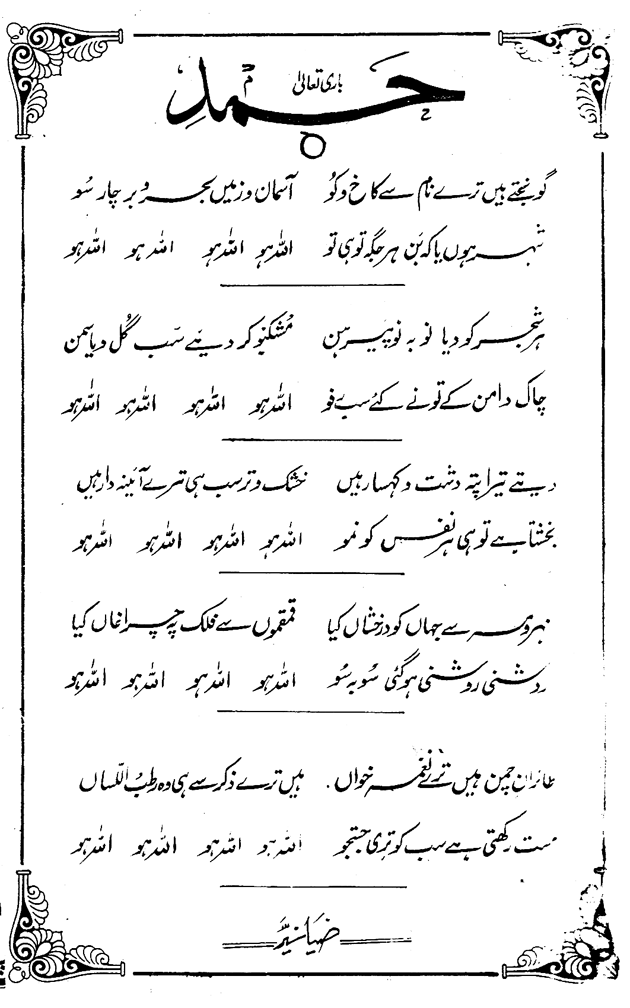 حمدِ باری تعالیٰ
گونجتے ہیں ترے نام سے کاخ و کُو آسمان و زمیں بحر و بر چار سُو
شہر ہوں یا کہ بَن ہر جگہ تو ہی تو اللہ ہو اللہ ہو اللہ ہو اللہ ہو
ہر شجر کو دیا نو بہ نو پیرہن مُشکبُو کر دیئے سَب گُل و یاسمن
چاک دامن کے تو نے کئے سب رفو اللہ ہو اللہ ہو اللہ ہو اللہ ہو
دیتے تیرا پتہ دشت و کہسار ہیں خشک و تر سب ہی تیرے آئینہ دار ہیں
بخشتا ہے تو ہی ہر نفس کو نمو اللہ ہو اللہ ہو اللہ ہو اللہ ہو
سے جہاں کو درخشاں کیا قمقموں سے فلک پہ چراغاں کیا
روشنی روشنی ہو گئی سُو بہ سُو اللہ ہو اللہ ہو اللہ ہو اللہ ہو
طائرانِ چمن ہیں ترے نغمہ خواں ہیں ترے ذکر سے ہی وہ رطبُ اللّساں
مست رکھتی ہے سب کو تری جستجو اللہ ہو اللہ ہو اللہ ہو اللہ ہو
ضیا نیّر